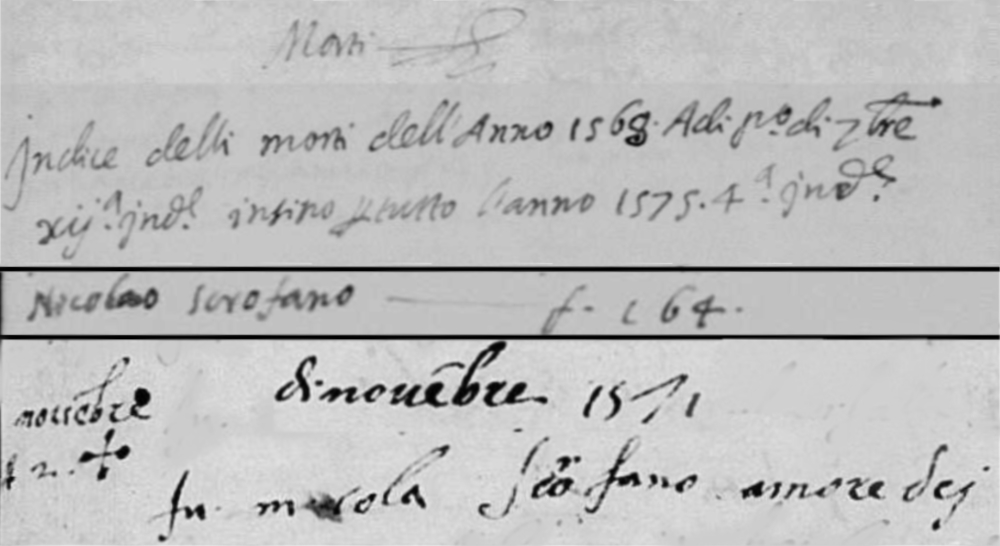 Morti
Indice delli morti dell'Anno 1568. Adi p.o di 7bre
xij.a ind.e insino p tutto l'anno 1575. 4.a ind.e
Nicolao scrofano f. 164.
di nouẽbre 1571
nouẽbre
2.
fu nicola scrofano amore dej